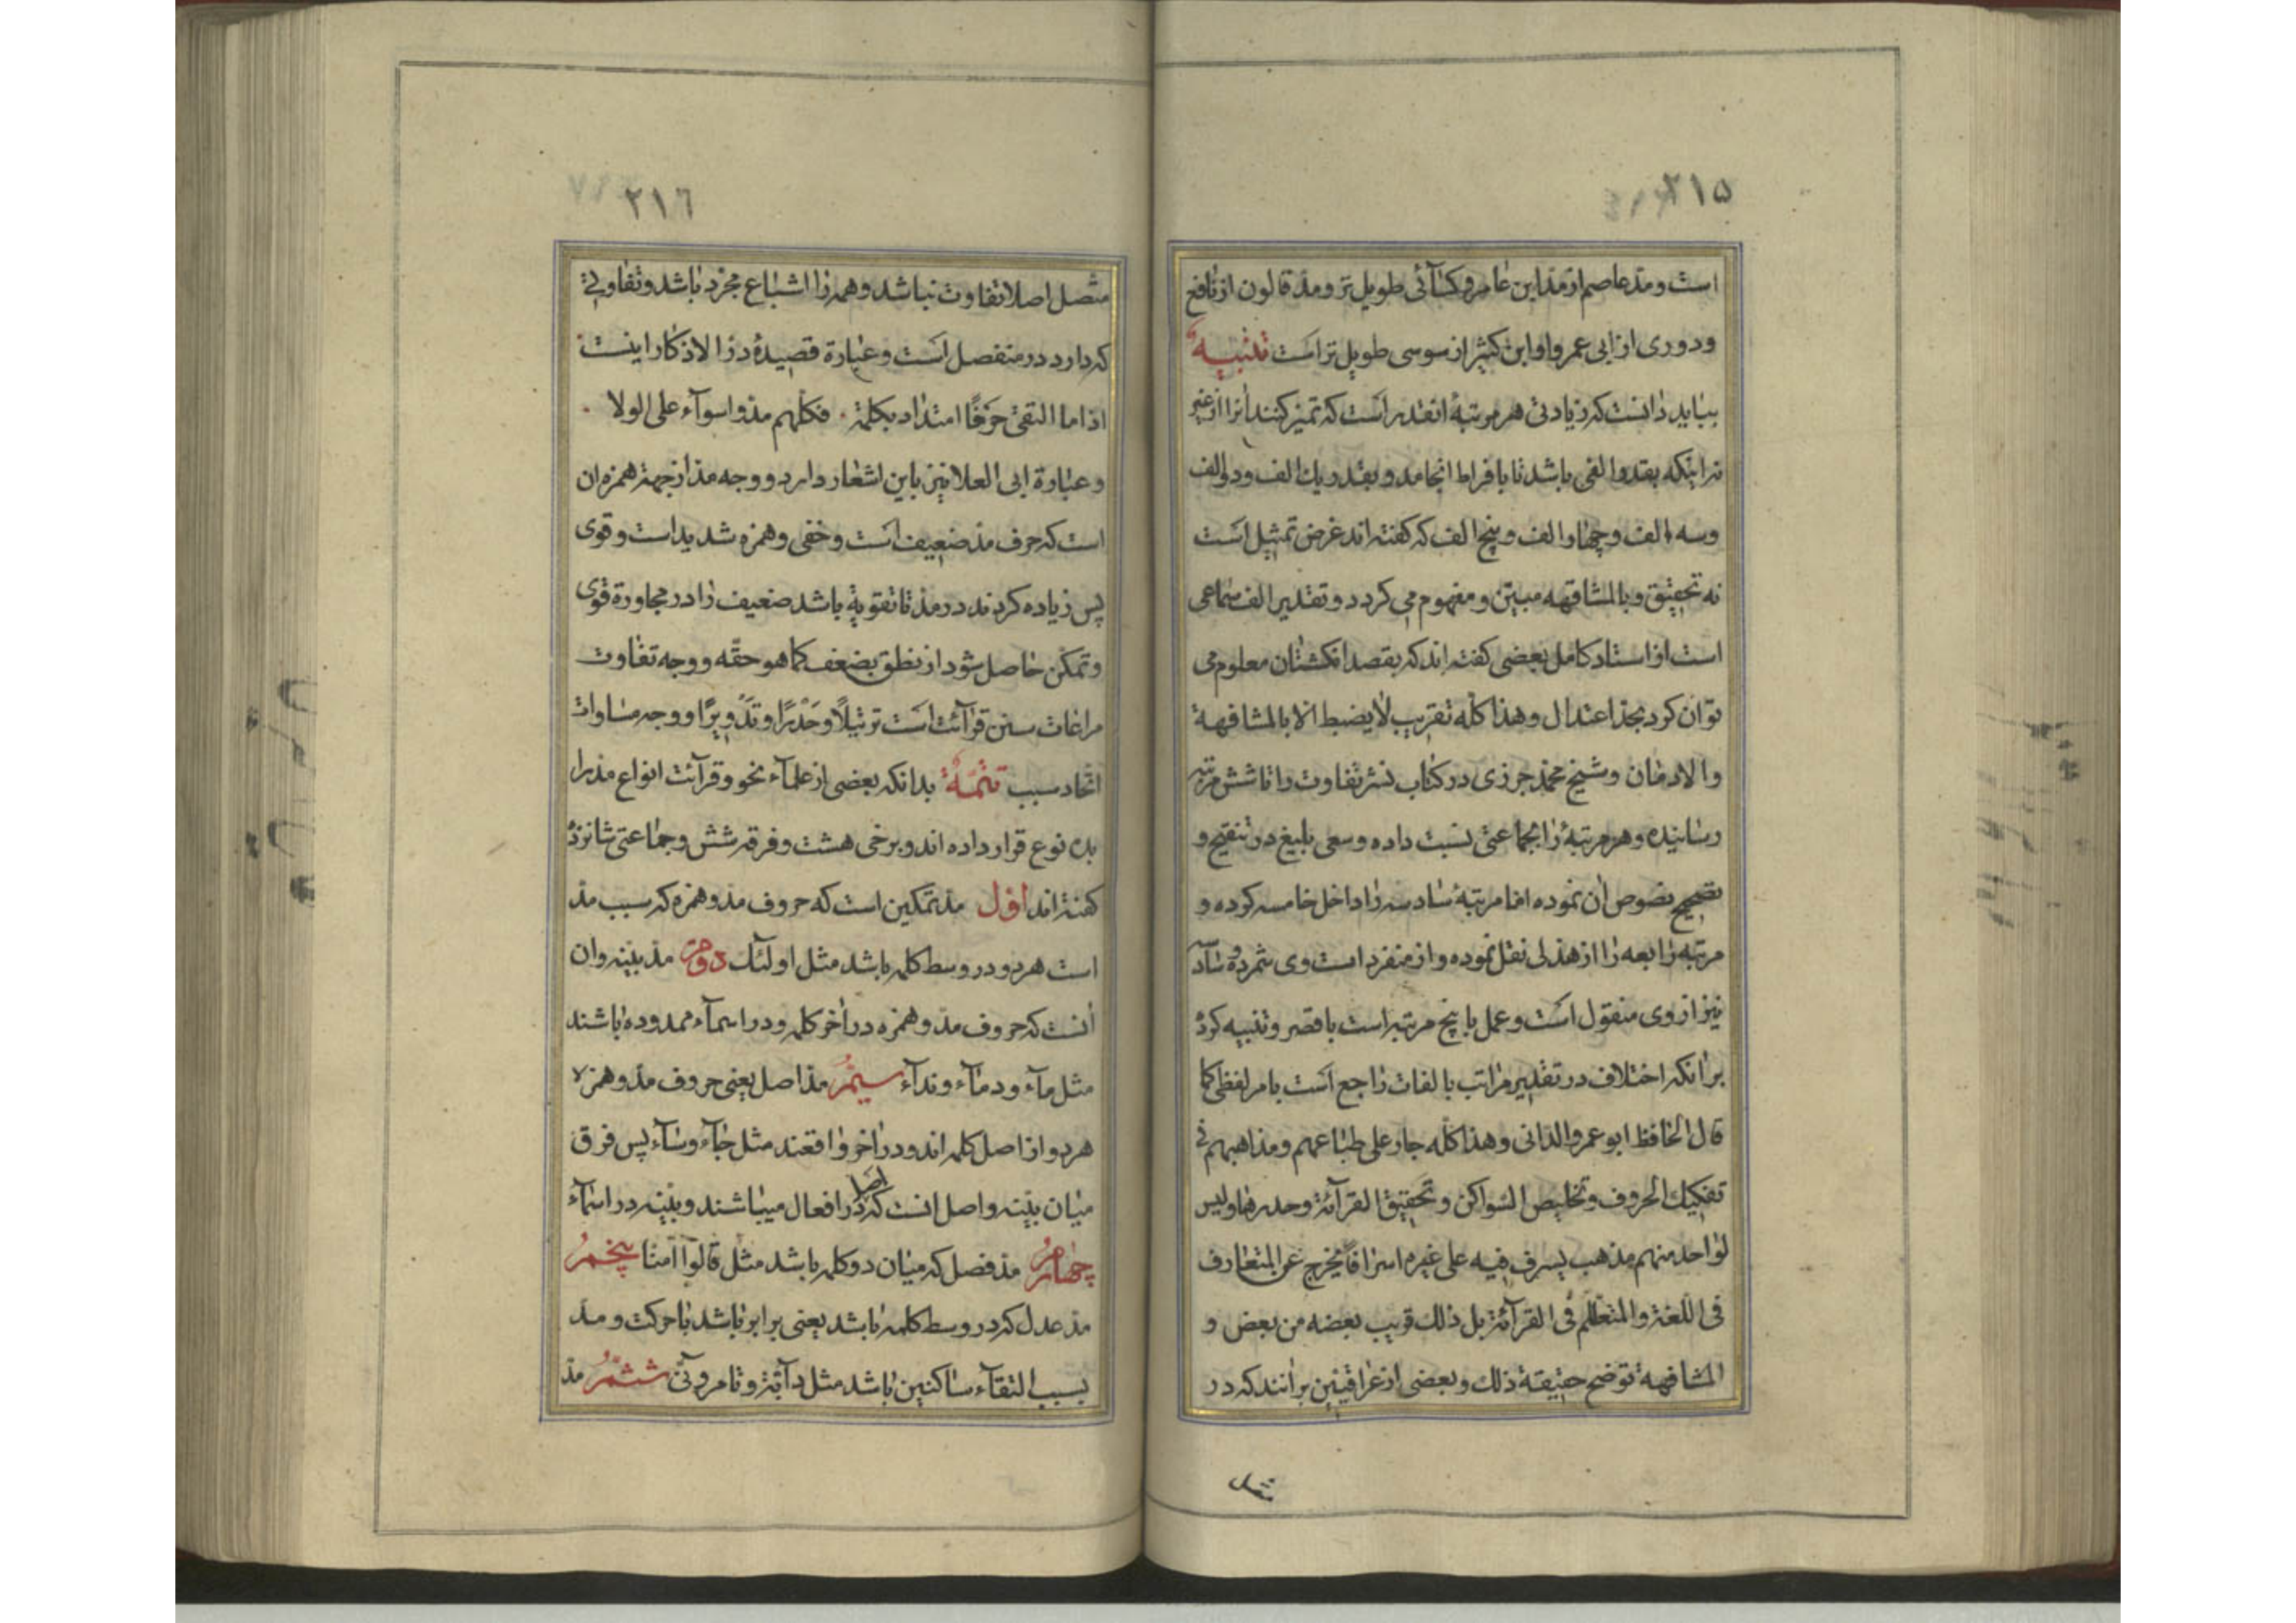 ۲۱۵
است و مد عاصم از مد ابن عامر و کسآئی طویل تر و مد قالون از نافع
و دوری از ابی عمرو او ابن کثیر از سوسی طویل تر است تنبیه
بباید دانست که زیادتی هر مرتبهٔ انقدر است که تمیز کنند انرا از غیر
نه اینکه بقدر الفی باشد تا بافراط انجامد و بقدر یك الف و دو الف
و سه الف و چهار الف و پنج الف که کفته اند غرض تمثیل است
نه تحقیق و بالمشافهه مبین و مفهوم می کردد و تقدیر الف سماعی
است از استاد کامل بعضی کفته اند که بقصد انکشتان معلوم می
توان کرد بحد اعتدال و هذا کله تقریب لا یضبط الا بالمشافهة
والادمان و شیخ محمد جرزی در کتاب نشر تفاوت را تا شش مرتبه
رسانیده و هر مرتبهٔ را بجماعتی نسبت داده و سعی بلیغ در تنقیح و
تصحیح نصوص ان نموده اما مرتبهٔ سادسه را داخل خامسه کرده و
مرتبه رابعه را از هذلی نقل نموده و از منفردات وی شمرده و
نیز از وی منقول است و عمل با پنج مرتبه است با قصر و تنبیه کرده
بر انکه اختلاف در تقدیر مراتب بالفات راجع است بامر لفظی کما
قال الحافظ ابو عمرو الدانی و هذا کله جار علی طباعهم و مذاهبهم فی
تفکیك الحروف و تخلیص السواکن و تحقیق القرآئة و حدرها و لیس
لواحد منهم مذهب یسرف فیه علی غیره اسرافا یخرج عن المتعارف
فی اللغة و المتعلم فی القرآئة بل ذلك قریب بعضه من بعض و
المشافهة توضح حقیقة ذلك و بعضی از عراقیین برانند که در
متصل
۲۱٦
متصل اصلا تفاوت نباشد و همه را اشباع مجرد باشد و تفاوتی
که دارد در منفصل است و عبارة قصیدهٔ درّ الاذکار اینست
اذا ما التقی حرفا امتداد بکلمة . فکلهم مدوا سوآء علی الولا .
و عبارة ابی العلا نیز باین اشعار دارد و وجه مد از جهة همزه ان
است که حرف مد ضعیف است و خفی و همزه شدید است و قوی
پس زیاده کردند در مد تا تقویة باشد ضعیف را در مجاورة قوی
و تمکن حاصل شود از نطق بضعف کما هو حقه و وجه تفاوت
مراعات سنن قرآئت است ترتیلا و حَدْرًا و تَدْویرًا و وجه مساوات
اتحاد سبب تتمّهٔ بدانکه بعضی از علمآء نحو و قرآئت انواع مد را
بده نوع قرار داده اند و برخی هشت و فرقه شش و جماعتی شانزده
کفته اند اوّل مد تمکین است که حروف مد و همزه که سبب مد
است هر دو در وسط کلمه باشد مثل اولئك دوّم مد بنیه و ان
انست که حروف مد و همزه در اخر کلمه و در اسمآء ممدوده باشند
مثل مآء و دمآء و ندآء سیّمُ مد اصل یعنی حروف مد و همزه
هر دو از اصل کلمه اند و در اخر واقعند مثل جآء و شآء پس فرق
میان بنیه و اصل انست که اصل در افعال میباشند و بنیه در اسمآء
چهارمُ مد فصل که میان دو کلمه باشد مثل قالوآ آمنا پنجمُ
مد عدل که در وسط کلمه باشد یعنی برابر باشد با حرکت و مد
بسبب التقآء ساکنین باشد مثل دآبّة و تامرونّی ششمُ مد